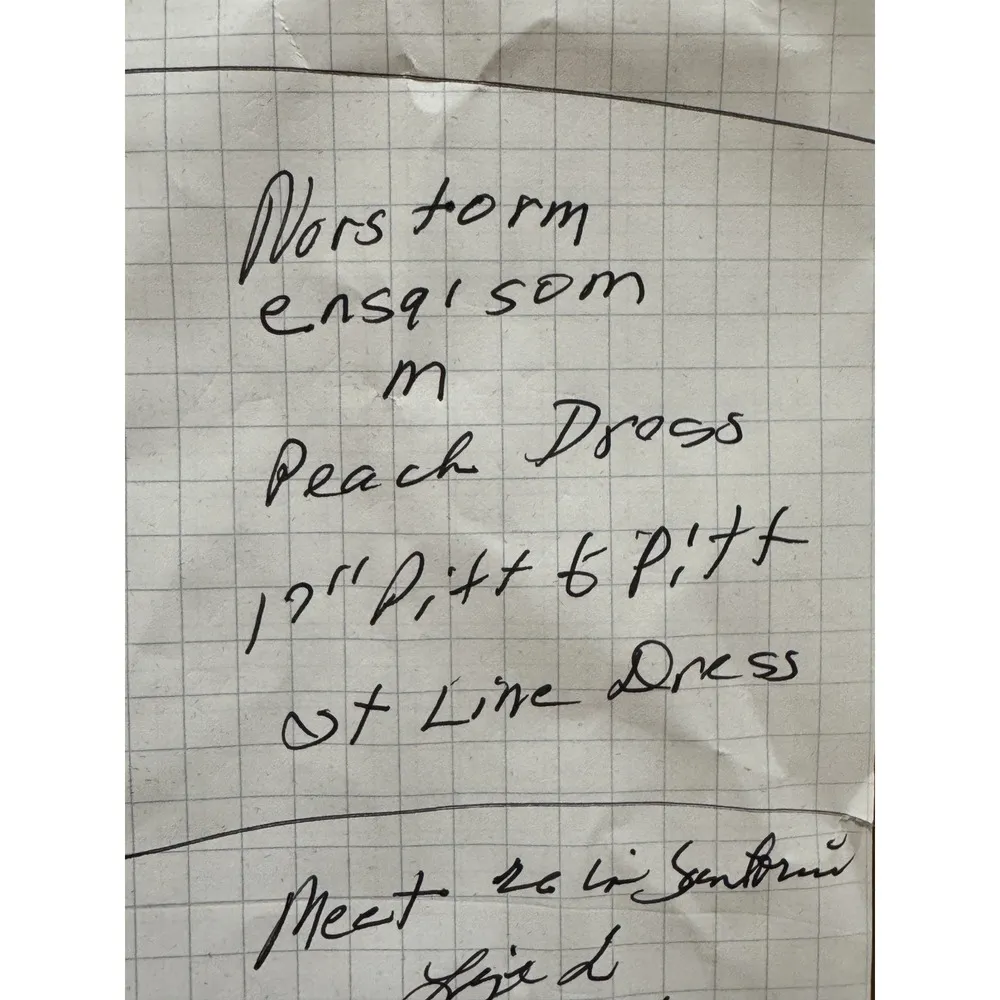 Norstorm
ensqisom
m
Peach Dress
19" Pitt to Pitt
ot Line Dress
Meet me in Santorini